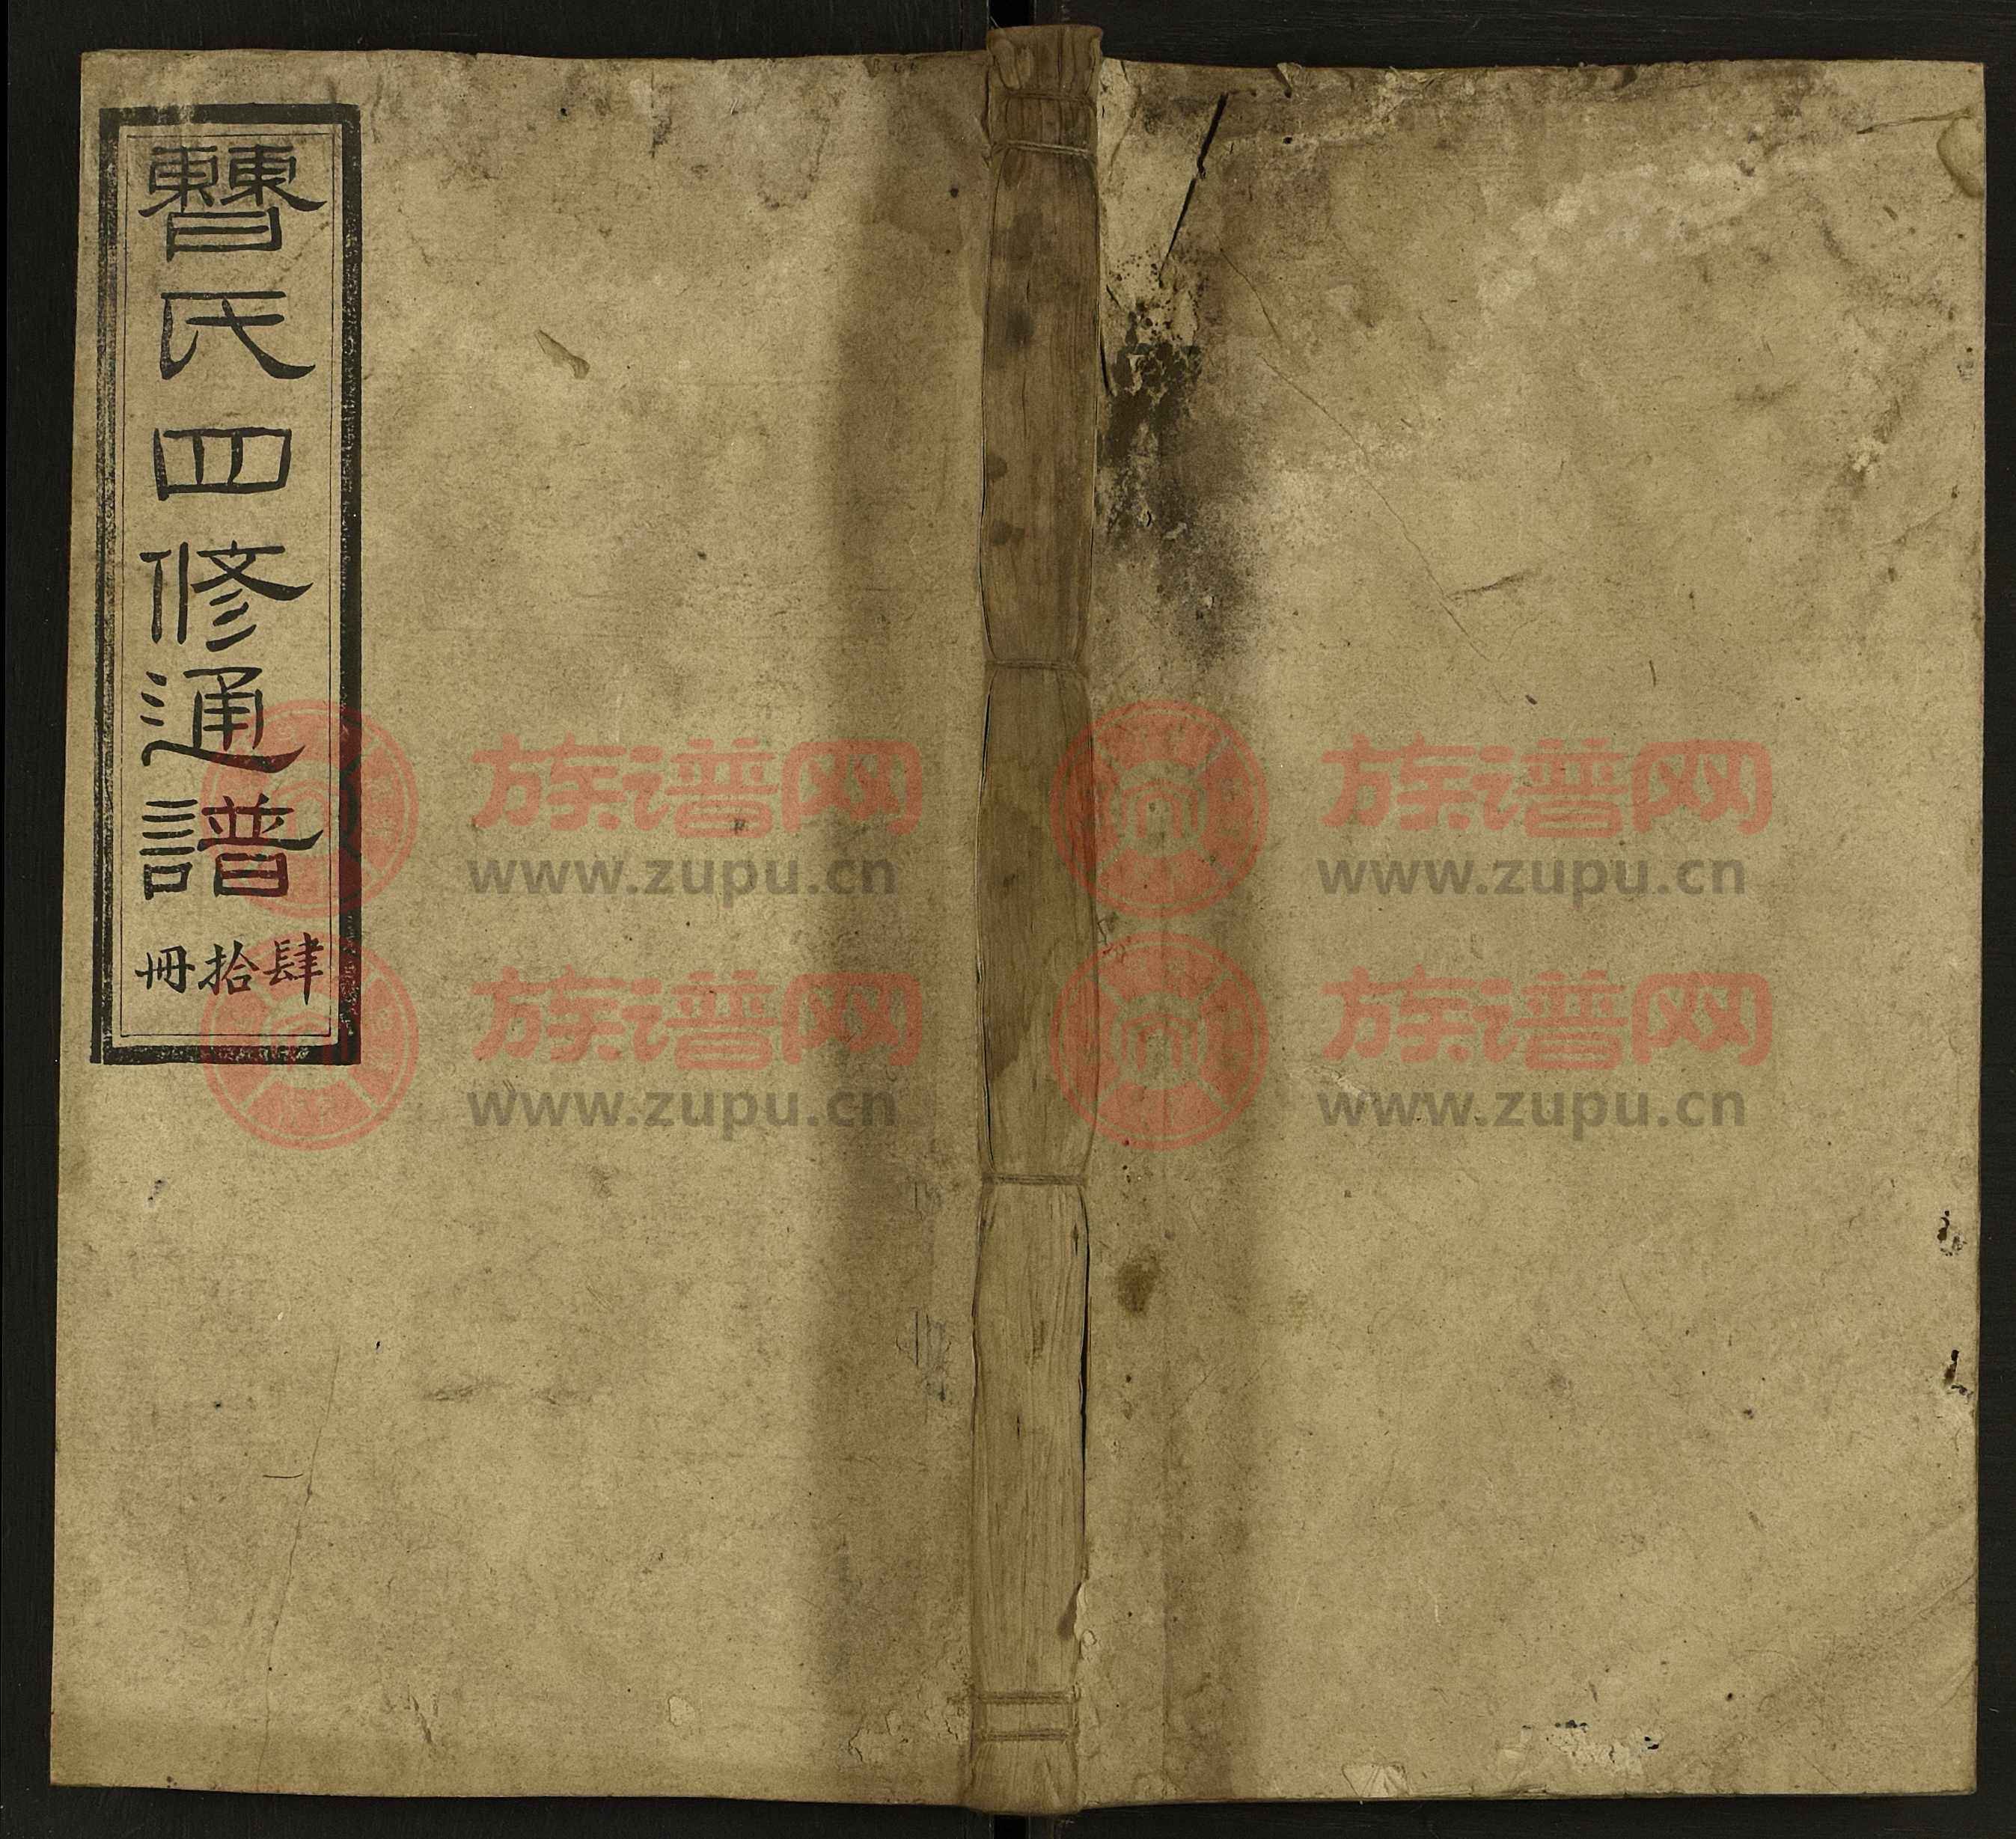 㯥氏四修通譜
肆拾冊
族谱网
www.zupu.cn
族谱网
www.zupu.cn
族谱网
www.zupu.cn
族谱网
www.zupu.cn